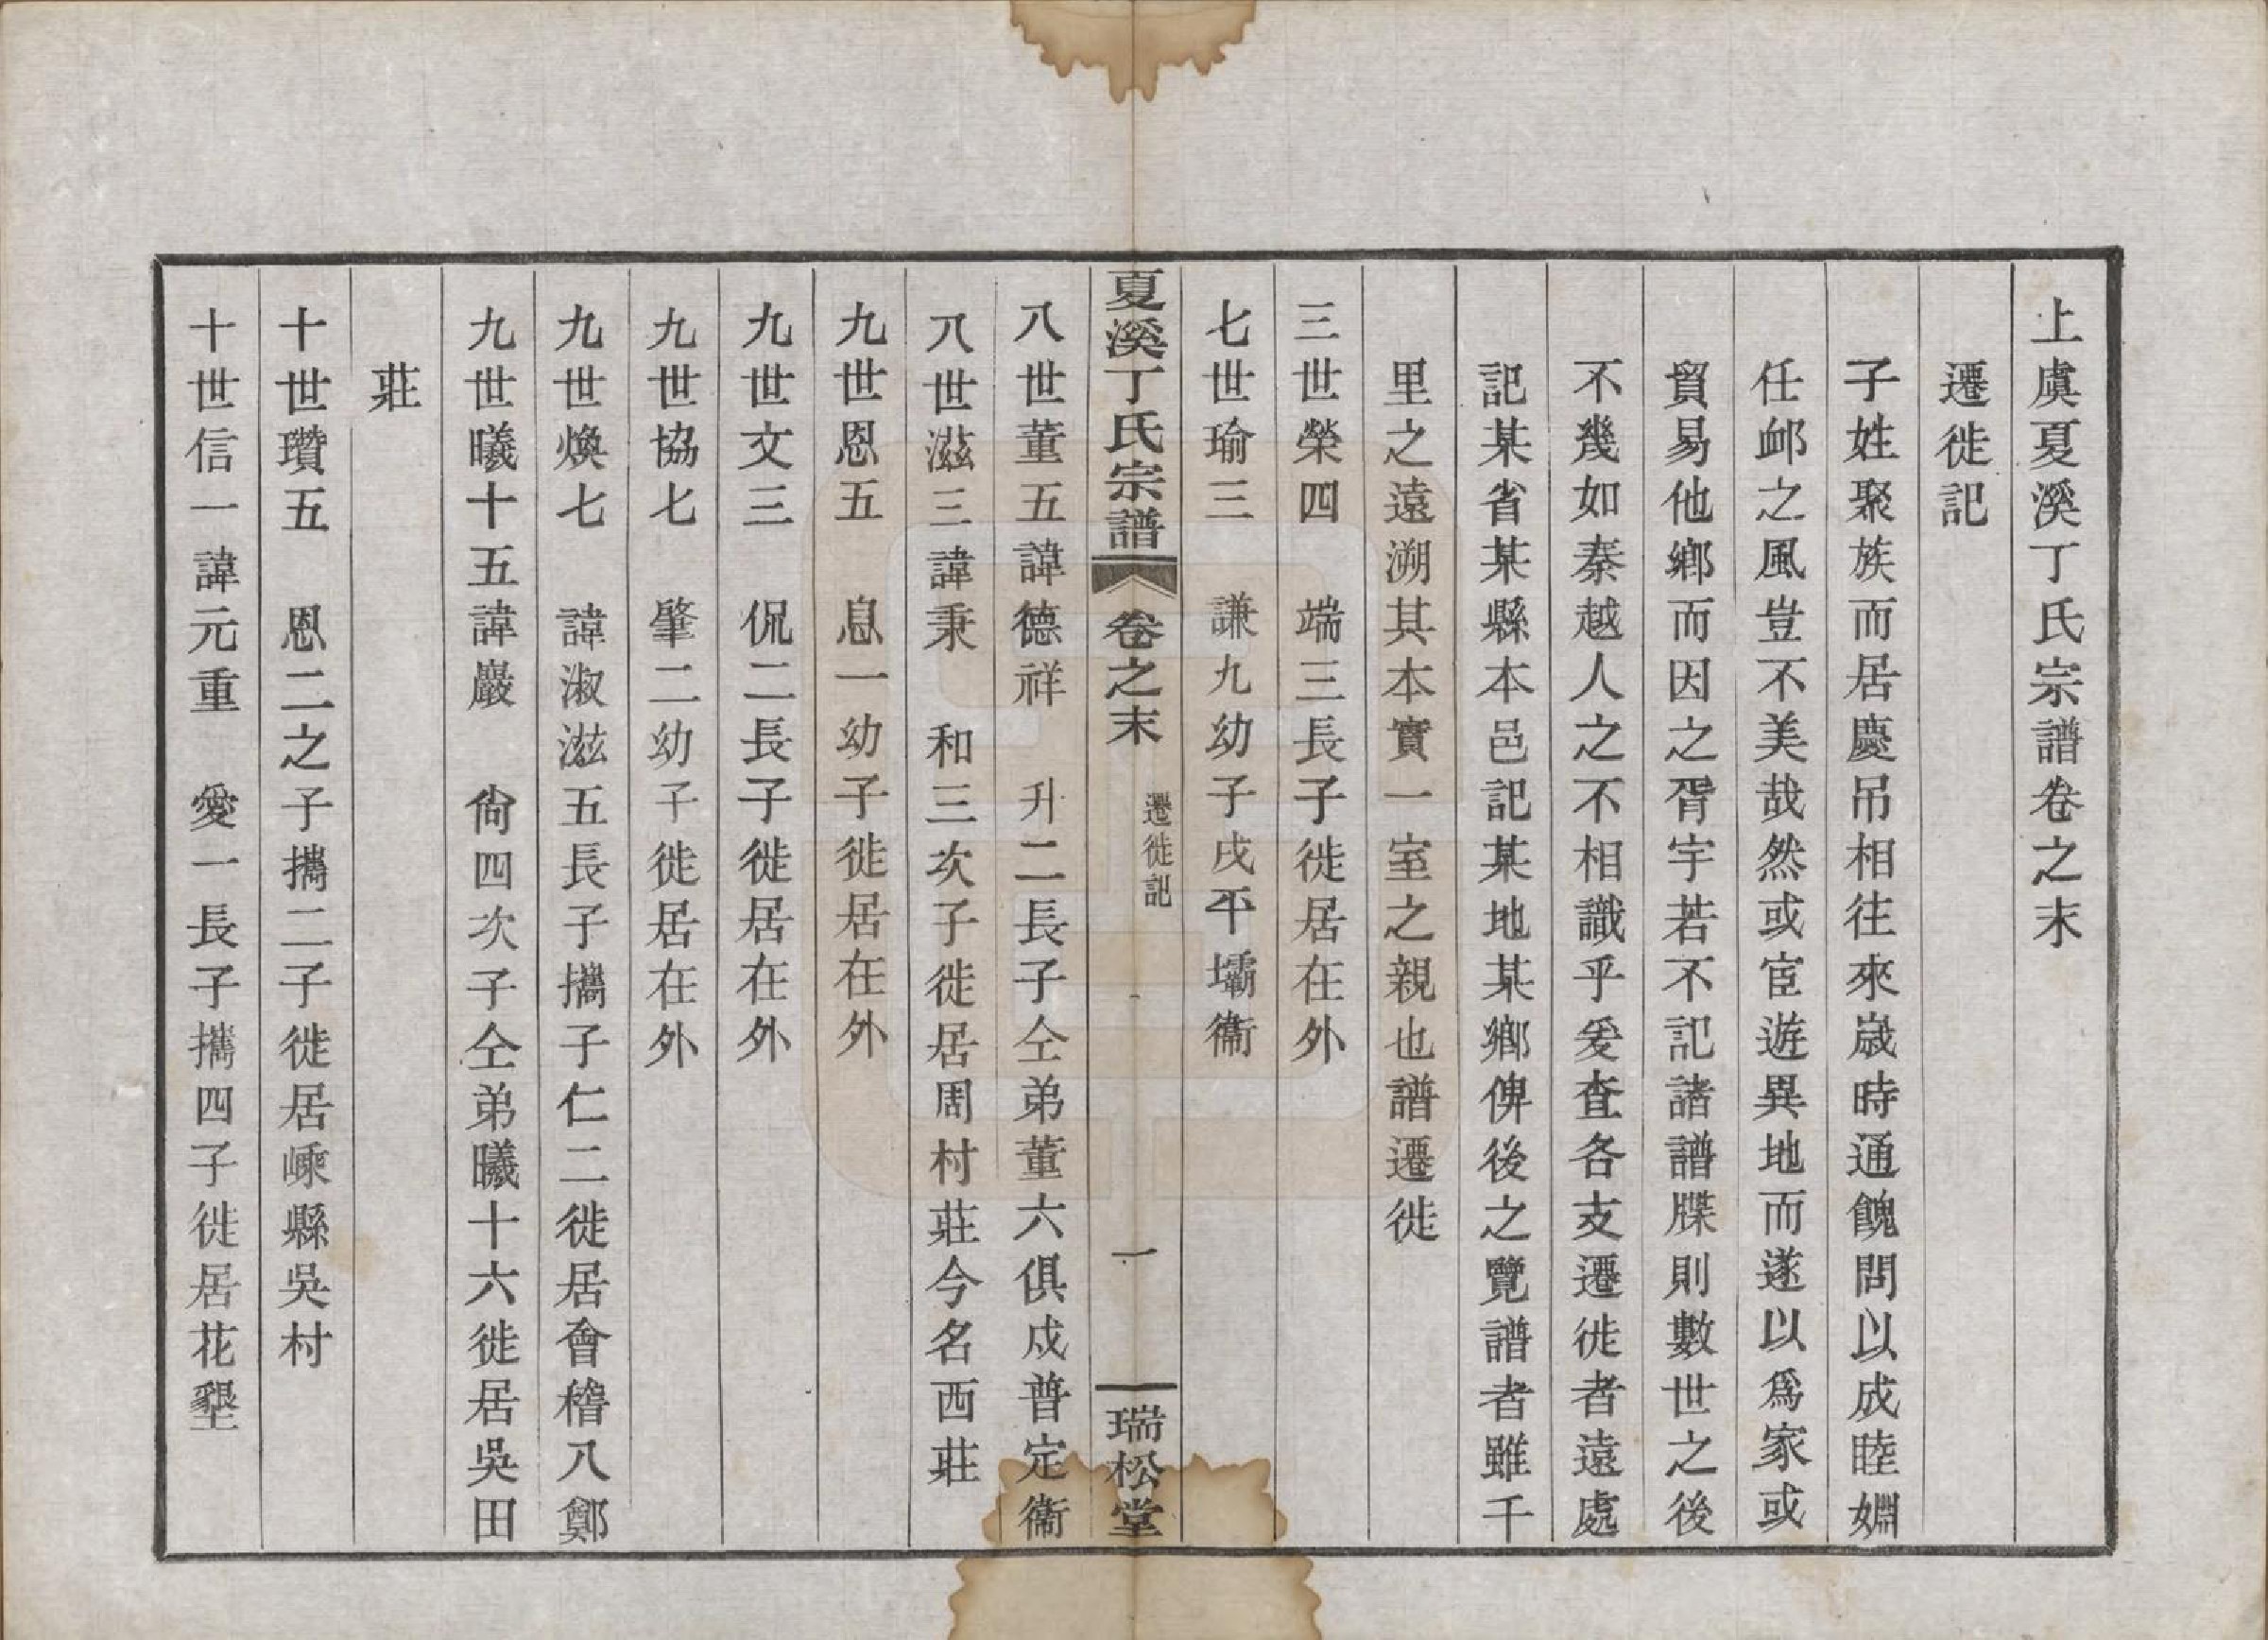 上虞夏溪丁氏宗譜卷之末
遷徙記
子姓聚族而居慶吊相往來歲時通餽問以成睦婣
任卹之風豈不美哉然或宦遊異地而遂以爲家或
貿易他鄉而因之胥宇若不記諸譜牒則數世之後
不幾如秦越人之不相識乎爰查各支遷徙者遠處
記某省某縣本邑記某地某鄉俾後之覽譜者雖千
里之遠溯其本實一室之親也譜遷徙
三世榮四　端三長子徙居在外
七世瑜三　謙九幼子戍平壩衞
夏溪丁氏宗譜　卷之末　遷徙記　一　瑞松堂
八世董五諱德祥　升二長子仝弟董六俱戍普定衞
八世滋三諱秉　和三次子徙居周村莊今名西莊
九世恩五　息一幼子徙居在外
九世文三　侃二長子徙居在外
九世協七　肇二幼子徙居在外
九世煥七　諱淑滋五長子攜子仁二徙居會稽八鄭
九世曦十五諱巖　尙四次子仝弟曦十六徙居吳田
莊
十世瓚五　恩二之子攜二子徙居嵊縣吳村
十世信一諱元重　愛一長子攜四子徙居花墾